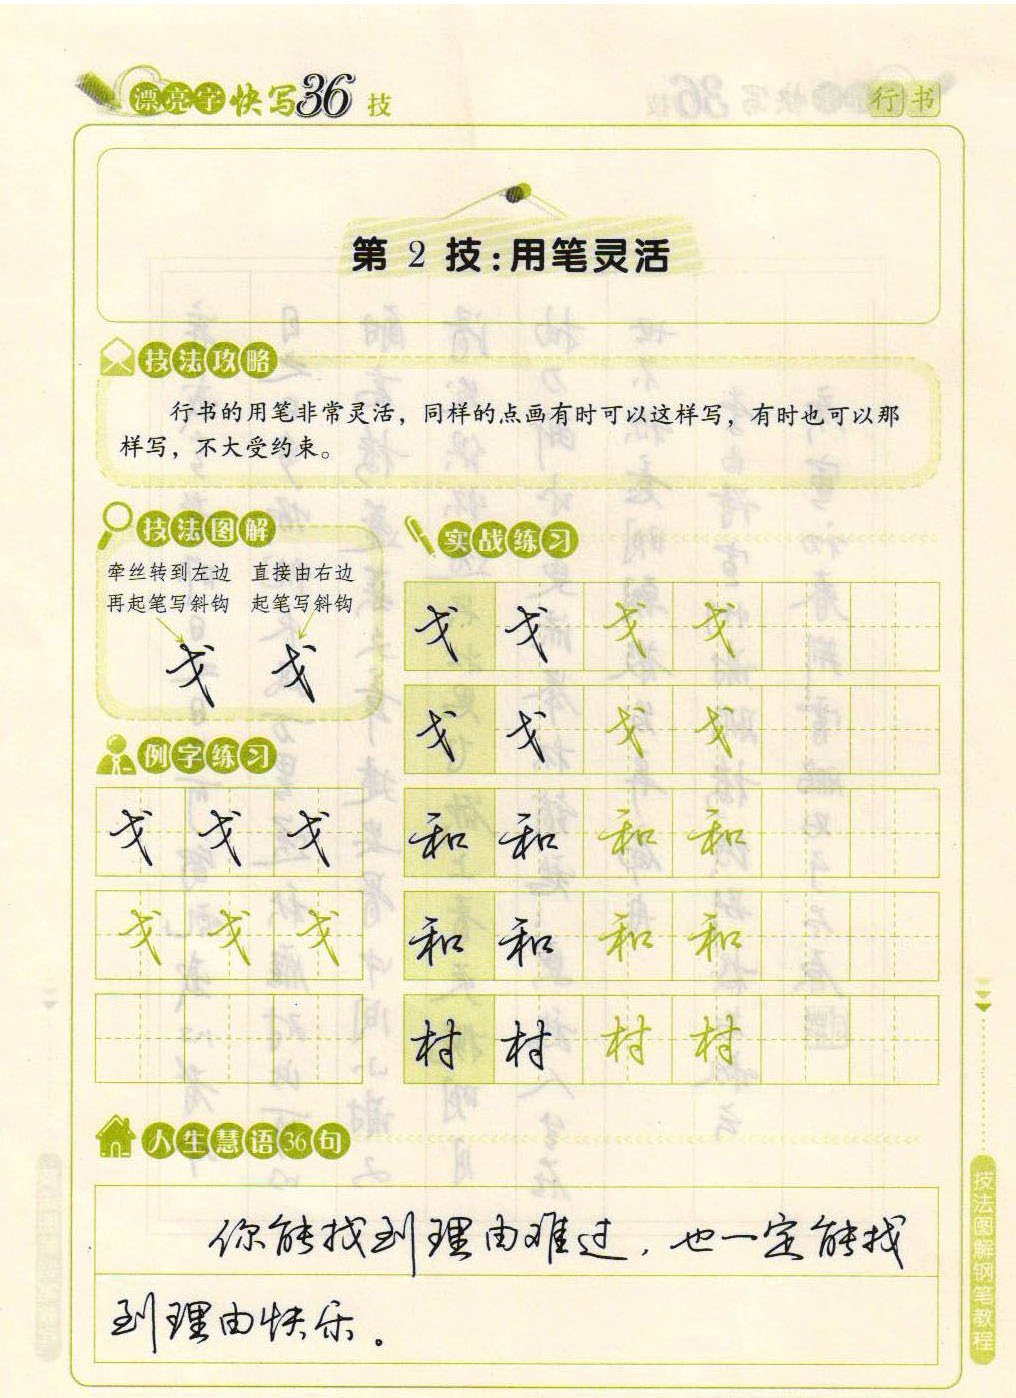 漂亮字快写36技
行书
第2技:用笔灵活
技法攻略
行书的用笔非常灵活，同样的点画有时可以这样写，有时也可以那
样写，不大受约束。
技法图解
牵丝转到左边 直接由右边
再起笔写斜钩 起笔写斜钩
戈 戈
实战练习
戈 戈 戈 戈
戈 戈 戈 戈
和 和 和 和
和 和 和 和
村 村 村 村
例字练习
戈 戈 戈
戈 戈 戈
人生慧语36句
你能找到理由难过，也一定能找
到理由快乐。
技法图解钢笔教程